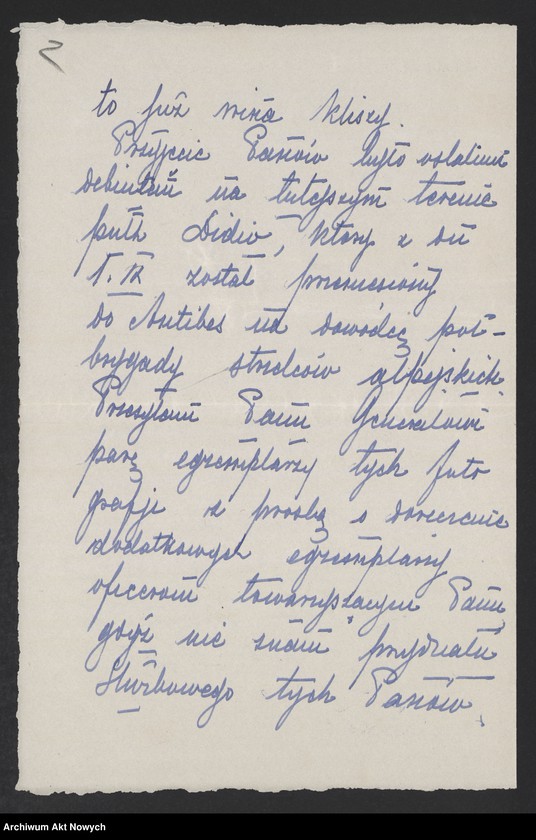 2
to już wina kliszy.
Przyjęcie Panów było ostatnim
debiutem na tutejszym terenie
pułk Didio, który z dn
1.IX został przeniesiony
do Antibes na dowódcę pół-
brygady strzelców alpejskich.
Przesyłam Panu Generałowi
parę egzemplarzy tych foto
grafji z prośbą o doręczenie
dodatkowych egzemplarzy
oficerom towarzyszącym Panu,
gdyż nie znam przydziału
służbowego tych Panów.
Archiwum Akt Nowych